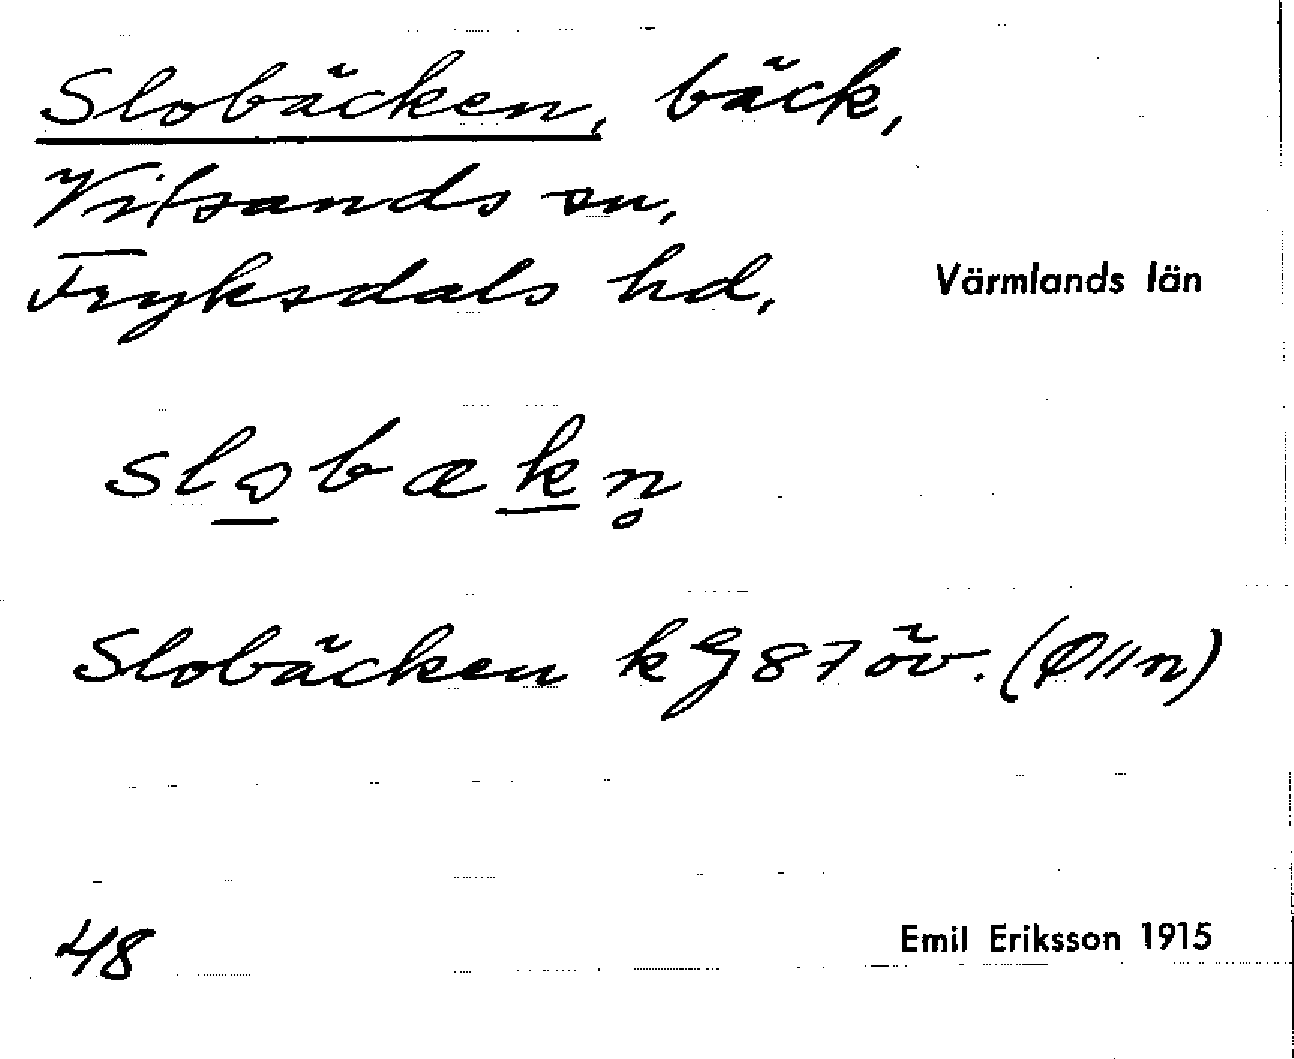 Slobäcken, bäck,
Vitsands sn,
Fryksdals hd, Värmlands län
slobækn̥
Slobäcken kG87öv.
48 Emil Eriksson 1915